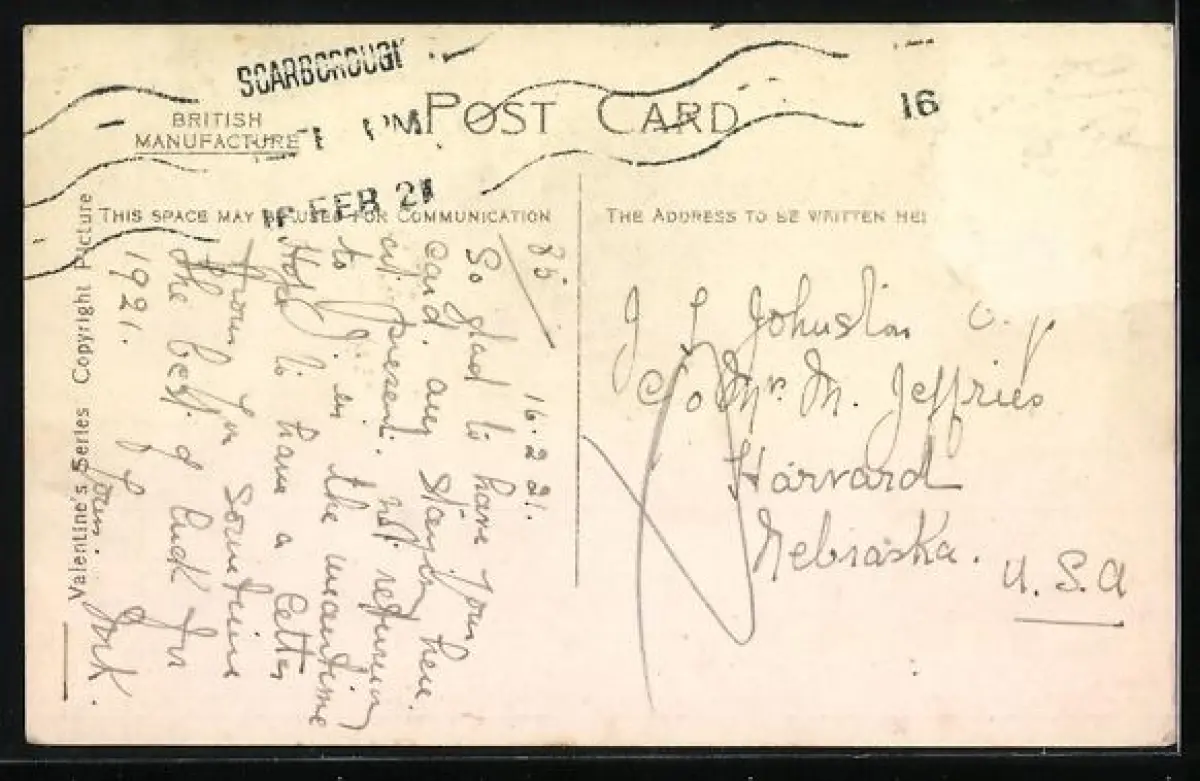 SCARBOROUGH
1 PM
16 FEB 21
16
BRITISH
MANUFACTURE
POST CARD
THIS SPACE MAY BE USED FOR COMMUNICATION
THE ADDRESS TO BE WRITTEN HE
Valentine's Series Copyright Picture
85
16.2.21.
So glad to have your
card. any staying here.
at present. not returning
to J. in the meantime
Hope to have a letter
from you sometime
the best of luck for
1921.
J L Johnston
C/o Mr. M. Jeffries
Harvard
Nebraska.
U.S.A